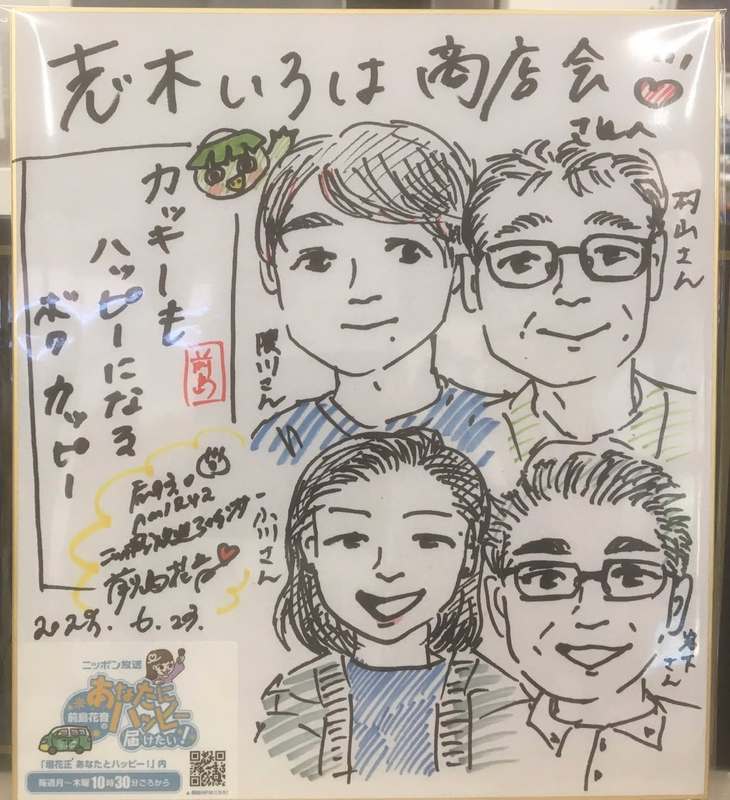 志木いろは商店会
さんへ
カッキーも
ハッピーになる
ボク カッピー
前島
村山さん
小川さん
岩下さん
AM1242
ニッポン放送
前島花音
ニッポン放送
前島花音の
あなたに
ハッピー
届けたい!
「垣花正 あなたとハッピー!」内
毎週月～木曜10時30分ごろから